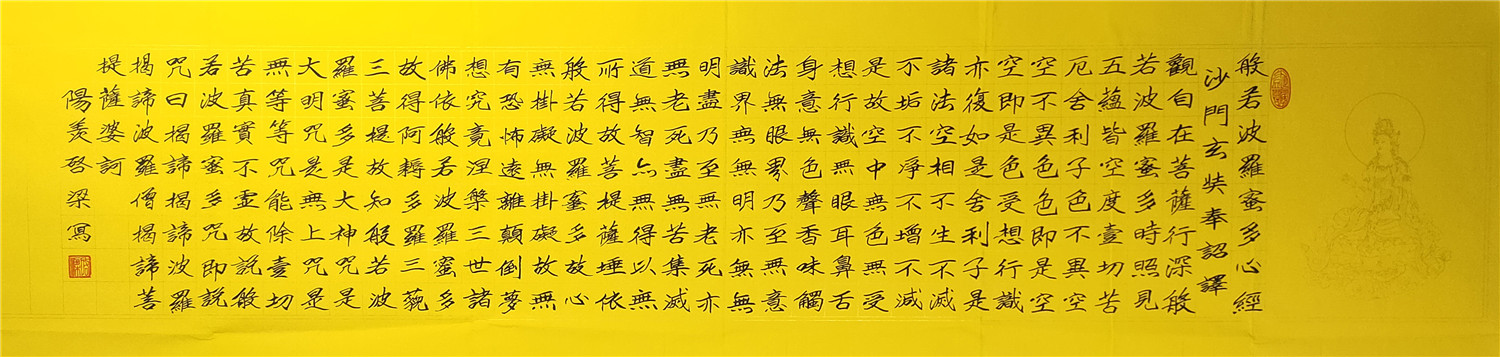 般若波羅蜜多心經
沙門玄奘奉詔譯
觀自在菩薩行深般
若波羅蜜多時照見
五蘊皆空度壹切苦
厄舍利子色不異空
空不異色色即是空
空即是色受想行識
亦復如是舍利子是
諸法空相不生不滅
不垢不淨不增不減
是故空中無色無受
想行識無眼耳鼻舌
身意無色聲香味觸
法無眼界乃至無意
識界無無明亦無無
明盡乃至無老死亦
無老死盡無苦集滅
道無智亦無得以無
所得故菩提薩埵依
般若波羅蜜多故心
無掛礙無掛礙故無
有恐怖遠離顛倒夢
想究竟涅槃三世諸
佛依般若波羅蜜多
故得阿耨多羅三藐
三菩提故知般若波
羅蜜多是大神咒是
大明咒是無上咒是
無等等咒能除壹切
苦真實不虛故說般
若波羅蜜多咒即說
咒曰揭諦揭諦波羅
揭諦波羅僧揭諦菩
提薩婆訶
陽羨啓梁寫